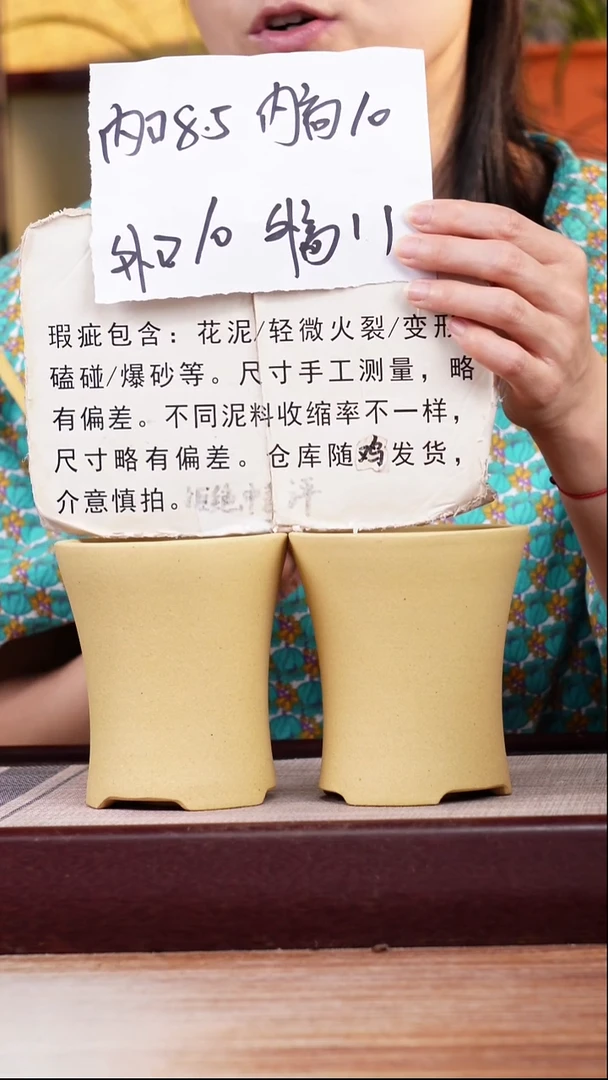 内口8.5 内高10
外口10 外高11
瑕疵包含：花泥/轻微火裂/变形
磕碰/爆砂等。尺寸手工测量，略
有偏差。不同泥料收缩率不一样，
尺寸略有偏差。仓库随鸡发货，
介意慎拍。